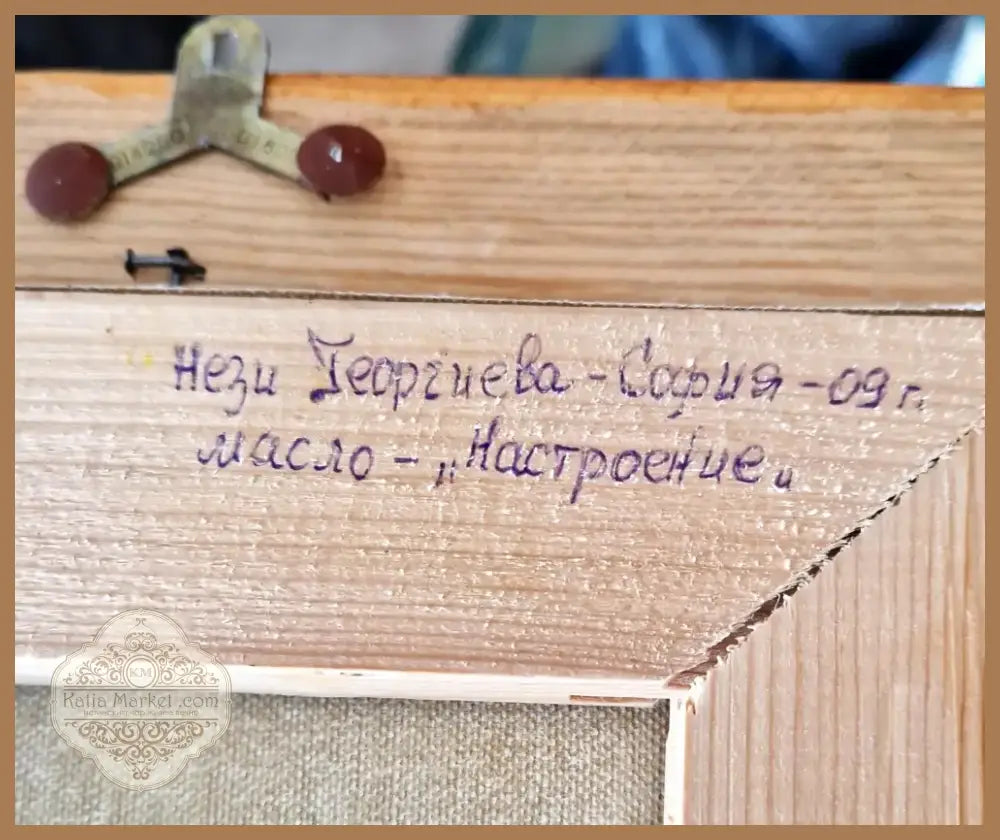 Нези Георгиева - София - 09 г.
масло - „Настроение„
KM
Katia Market .com